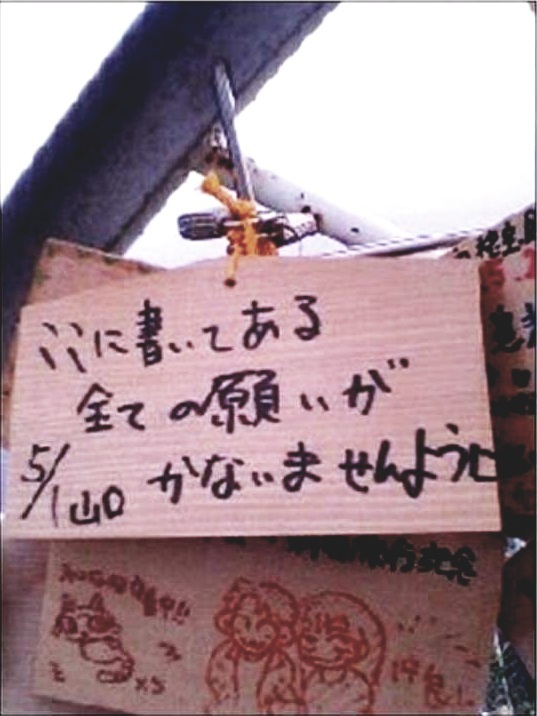 ここに書いてある
全ての願いが
かないませんように
5/1 山口
仲良し